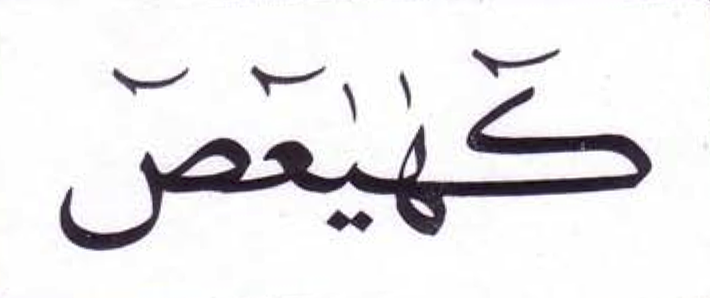 كٓهٰيٰعٓصٓ